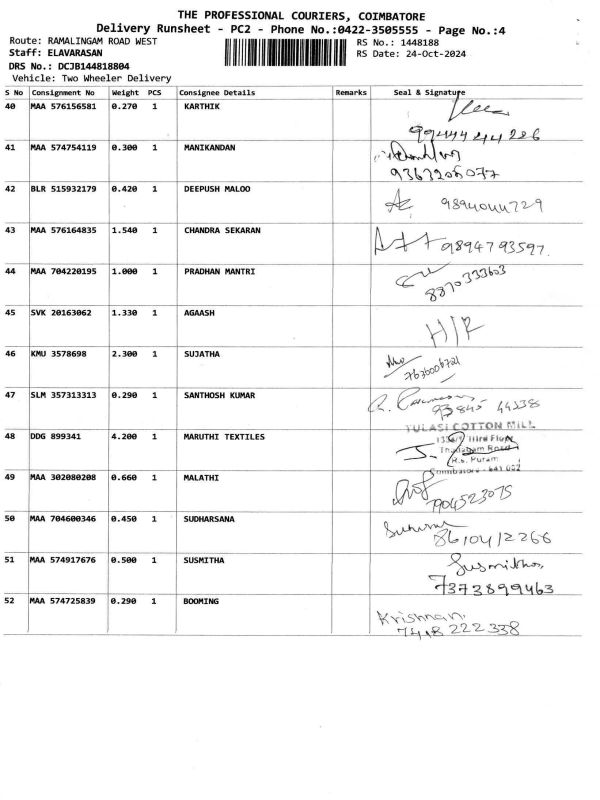 THE PROFESSIONAL COURIERS, COIMBATORE
Delivery Runsheet - PC2 - Phone No.:0422-3505555 - Page No.:4
Route: RAMALINGAM ROAD WEST RS No.: 1448188
Staff: ELAVARASAN RS Date: 24-Oct-2024
DRS No.: DCJB144818804
Vehicle: Two Wheeler Delivery
S No Consignment No Weight PCS Consignee Details Remarks Seal & Signature
40 MAA 576156581 0.270 1 KARTHIK
9944444286
41 MAA 574754119 0.300 1 MANIKANDAN
9367206077
42 BLR 515932179 0.420 1 DEEPUSH MALOO
9894044729
43 MAA 576164835 1.540 1 CHANDRA SEKARAN
9894793597
44 MAA 704220195 1.000 1 PRADHAN MANTRI
8870333603
45 SVK 20163062 1.330 1 AGAASH
H/R
46 KMU 3578698 2.300 1 SUJATHA
47 SLM 357313313 0.290 1 SANTHOSH KUMAR
TULASI COTTON MILL
48 DDG 899341 4.200 1 MARUTHI TEXTILES
Third Floor
Road
R.S. Puram
Coimbatore - 641 002
49 MAA 302080208 0.660 1 MALATHI
7904523075
50 MAA 704600346 0.450 1 SUDHARSANA
8610412266
51 MAA 574917676 0.500 1 SUSMITHA
Susmitha
7373899463
52 MAA 574725839 0.290 1 BOOMING
Krishnan
7418 222 338